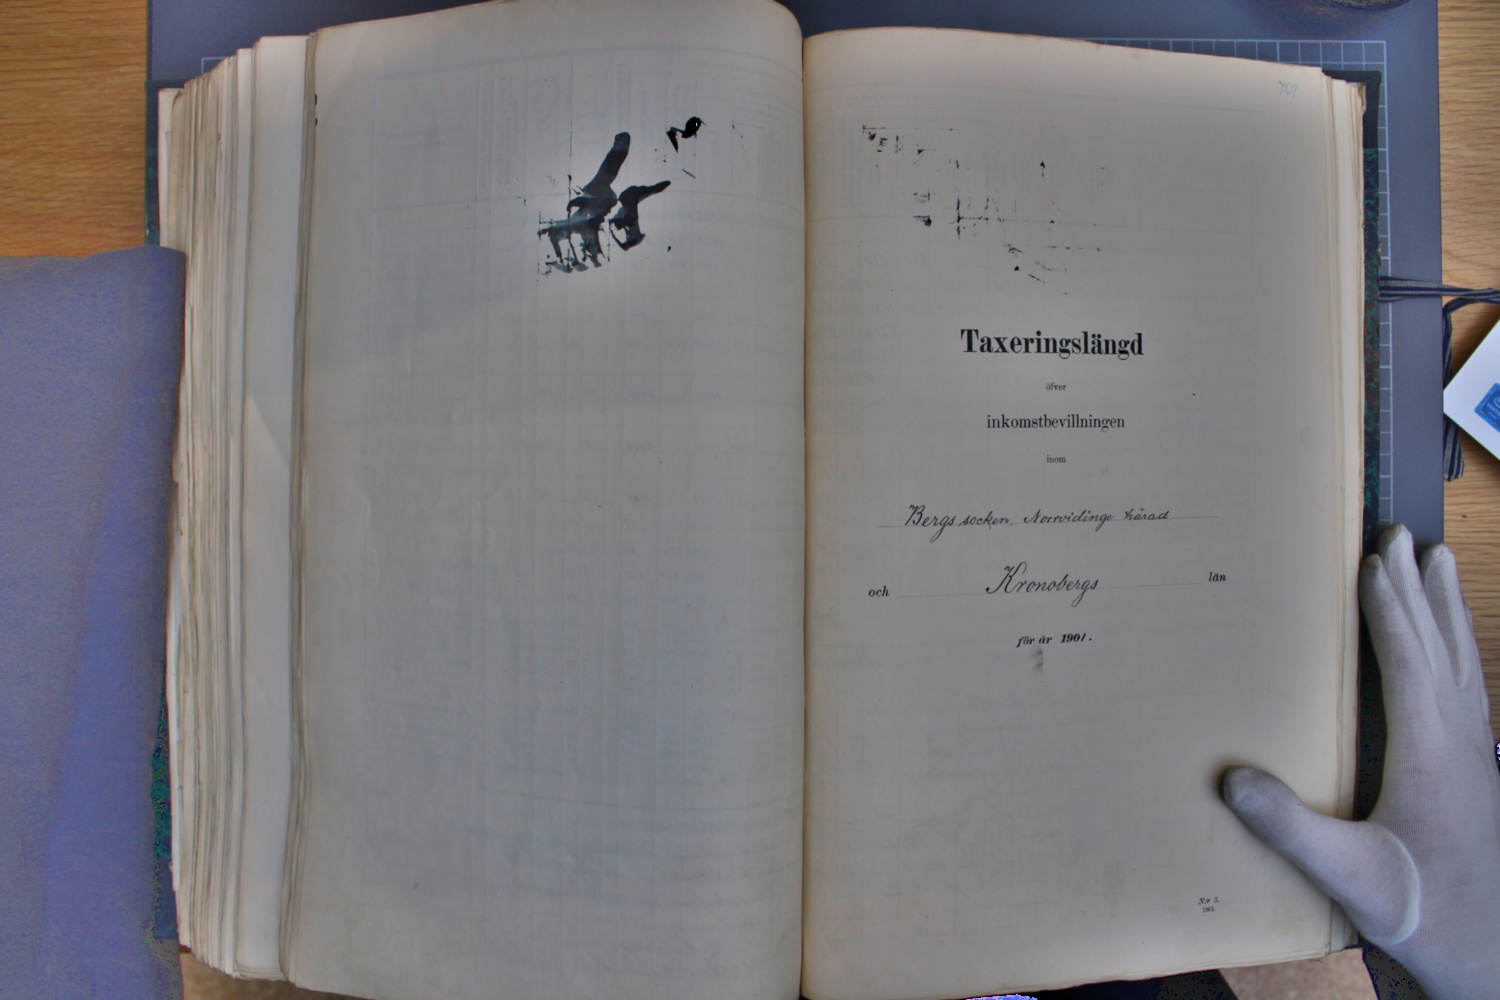 769
Taxeringslängd
öfver
inkomstbevillningen
inom
Bergs socken, Norrvidinge härad
och Kronobergs län
för år 1901.
N:r 5.
1901.